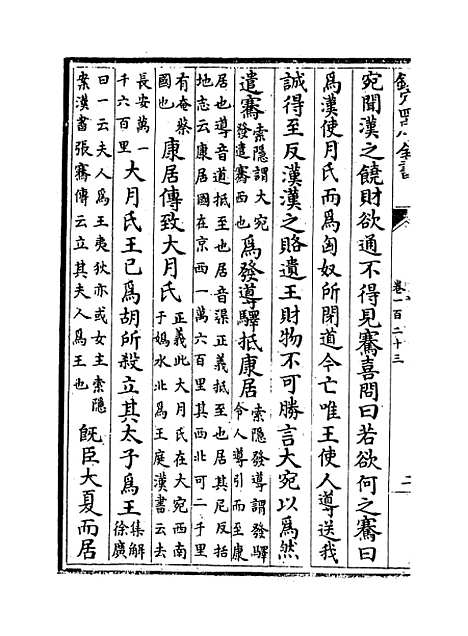 欽定四庫全書
卷一百二十三
二
宛聞漢之饒財欲通不得見騫喜問曰若欲何之騫曰
爲漢使月氏而爲匈奴所閉道今亡唯王使人導送我
誠得至反漢漢之賂遺王財物不可勝言大宛以爲然
遣騫索隱謂大宛發遣騫西也爲發導驛抵康居索隱發導謂發驛令人導引而至康
居也導音道抵至也居音渠正義抵至也居其尼反括地志云康居國在京西一萬六百里其西北可二千里
有奄蔡國也康居傳致大月氏正義此大月氏在大宛西南于媯水北爲王庭漢書云去
長安萬一千六百里大月氏王已爲胡所殺立其太子爲王集解徐廣
曰一云夫人爲王夷狄亦或女主索隱案漢書張騫傳云立其夫人爲王也既臣大夏而居